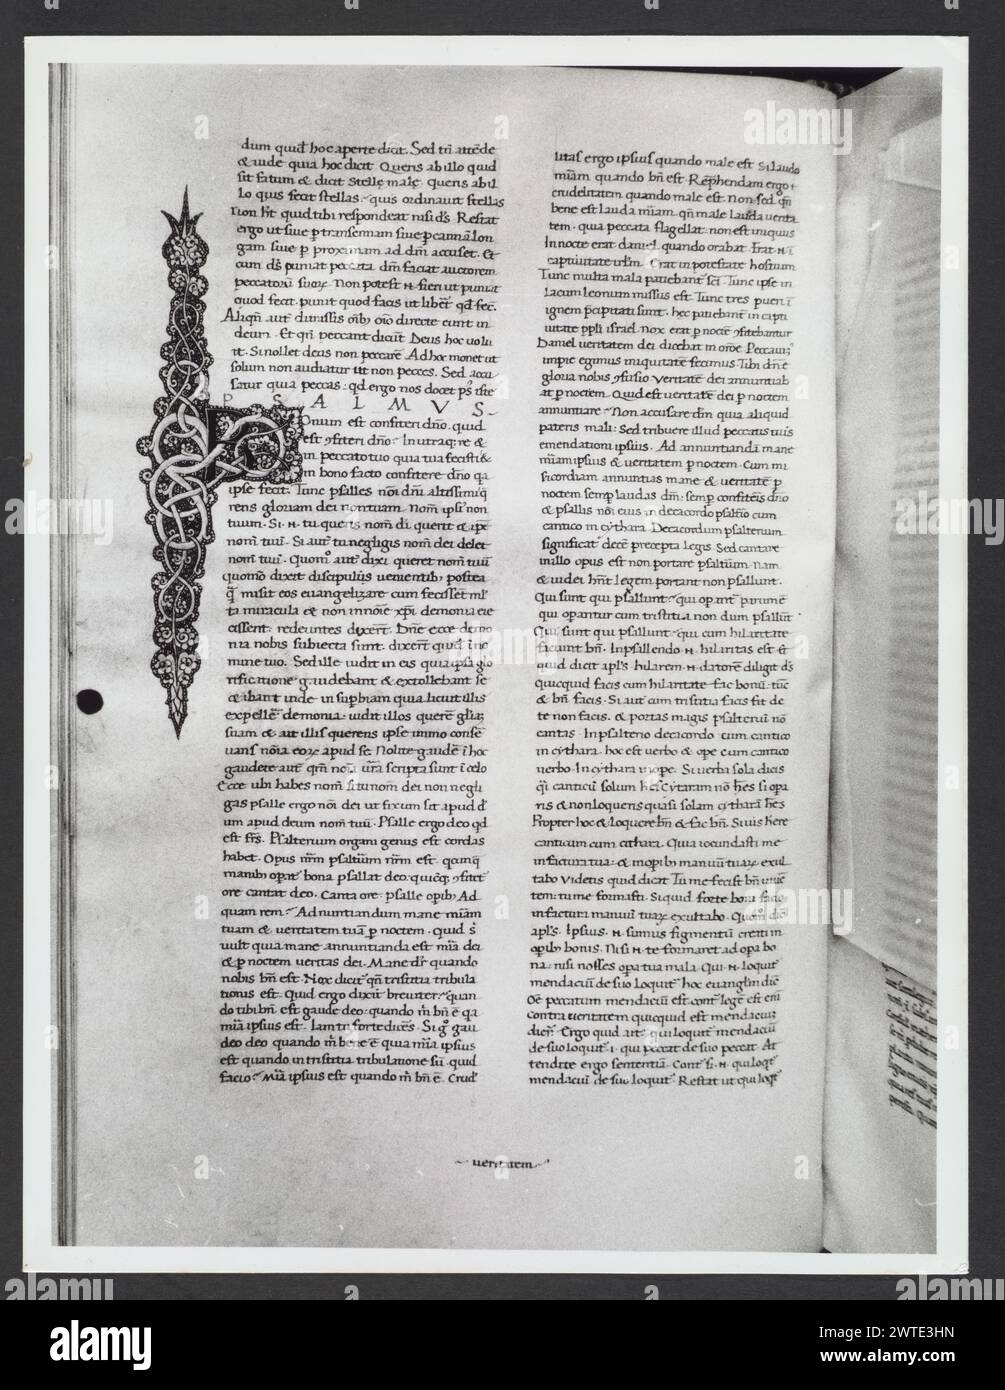 dum quid hoc aperte dicit. Sed tñ attēde
& uide quia hoc dicit Quens ab illo quid
sit fatum & dicit stellę malę. quens ab il
lo quis fecit stellas. quis ordinauit stellas
non ht quid tibi respondeat nisi ds. Restat
ergo ut siue p transennam siue p cannā lon
gam siue p proximum ad dm accuset. Et
cum ds puniat peccata dm faciat auctorem
peccatorū suoꝝ. Non potest n fieri ut puniat
quod fecit. punit quod facis ut liberet qd fec.
deum. Et qn peccant dicūt Deus hoc uolu
it. Si nollet deus non peccarē. Ad hoc monet ut
solum non audiatur ut non pecces. Sed accu
satur quia peccas. qd ergo nos docet ps iste
PSALMVS
Bonum est confiteri dno. quid
est confiteri dno. In utraq: re &
in peccato tuo quia tua fecisti &
in bono facto confitere dno qa
ipse fecit. Tunc psalles noī dni altissimi q
rens gloriam dei non tuam. Nom ipsi non
tuum. Si n tu queris nom di querit & ipe
nom tuū. Si aut tu negligis nom dei delet
nom tuū. Quom aut dixi queret nom tuū
quomō dixit discipulis uenientib postea
q misit eos euangelizare cum fecissent ml
ta miracula & non in noīe xpi demonia eie
cissent. redeuntes dixert. Dne ecce demo
nia nobis subiecta sunt. dixert quid i no
mine tuo. Sed ille uidit in eis quia ipsa glo
rificatione gaudebant & extollebant se
& ibant inde in supbiam quia licuit illis
expellē demonia. uidit illos querē gliā
suam & aut illis querens ipse immo conse
uans noīa eoꝝ apud se. Nolite gaudē i hoc
gaudete aut qm noīa ura scripta sunt i celo
Ecce ubi habes nom si tu nom dei non negli
gas psalle ergo noī dei ut fixum sit apud d
um apud deum nom tuū. Psalle ergo deo qd
est frs. Psalterium organi genus est cordas
habet. Opus nrm psaltiū nrm est. qcunq
manib opat bona psallat deo. quicq; confitet
ore cantat deo. Canta ore. psalle opib Ad
quam rem? Adnuntiandum mane miam
tuam & ueritatem tuā p noctem. Quid s
uult quia mane annuntianda est mia dei
& p noctem ueritas dei. Mane dr quando
nobis bn est. Nox dicit qn tristitia tribula
tionis est. Quid ergo dixit breuiter? quan
do tibi bn est gaude deo. quando m bn ē qa
mia ipsius est. Iam tr forte dices. Si go gau
deo deo quando m bene ē quia mia ipsius
est quando in tristitia tribulatione sū. quid
facio? Mia ipsius est quando m bn ē. Crud
litas ergo ipsius quando male est Si laudo
miam quando bn est Rephendam ergo
crudelitatem quando male est. Non sed qn
bene est lauda miam. qn male lauda uerita
tem. quia peccata flagellat non est iniquus
In nocte erat daniel quando orabat Erat n i
captiuitate irlm. Erat in potestate hostium
Tunc multa mala patiebant sci. Tunc ipse in
lacum leonum missus est. Tunc tres pueri i
ignem pcipitati sunt. hec patiebant in capti
uitate ppli israel. Nox erat p nocte confitebantur
Daniel ueritatem dei dicebat in orōe Peccauim
impie egimus iniquitatē fecimus. Tibi dne
gloria nobis confusio Veritatē dei annuntiab
at p noctem. Quid est ueritatē dei p noctem
annuntiare? Non accusare dm quia aliquid
pateris mali. Sed tribuere illud peccatis tuis
emendationi ipsius. Ad annuntiandā mane
miam ipsius & ueritatem p noctem. Cum mi
sericordiam annuntias mane & ueritatē p
noctem semp laudas dm. semp confiteris dno
& psallis noī eius in decacordo psalmo cum
cantico in cythara. Decacordum psalterium
significat decē precepta legis. Sed cantare
in illo opus est non portare psaltiūm. Nam
& iudei hnt legem portant non psallunt.
Qui sunt qui psallunt? qui opant p rum ē
qui opantur cum tristitia non dum psallūt
Qui sunt qui psallunt? qui cum hilaritate
faciunt bn. In psallendo n hilaritas est et
quid dicit apls. hilarem n datorē diligit ds
quicquid facis cum hilaritate fac bonū. tūc
& bn facis. Si aut cum tristitia facis fit de
te non facis. & portas magis psalterium nō
cantas. In psalterio decacordo cum cantico
in cythara. hoc est uerbo & ope cum cantico
uerbo. In cythara in ope. Si uerba sola dicis
qi canticū solum hes cytaram nō hes si opa
ris & non loqueris quasi solam cythara hes
Propter hoc & loquere bn & fac bn. Si uis here
canticum cum cithara. Quia iocundasti me
in factura tua. & in opib manuū tuaꝝ exul
tabo Videtis quid dicat Tu me fecisti bn uiuē
tem. tu me formasti. Si quid forte boni facio
in factura manuū tuaꝝ exultabo. Quom dic
apls. Ipsius n sumus figmentū creati in
opib bonis. Nisi n te formaret ad opa bo
na. nisi nosses opa tua mala. Qui n loquit
mendaciū de suo loquit hoc euanglm dic
Oē peccatum mendaciū est. cont legē est eni
contra ueritatem quicquid est mendaciū
dicit. Ergo quid ait. qui loquit mendaciū
de suo loquit. i. qui peccat de suo peccat. At
tendite ergo sententiā. Cont. Si n qui loqt
mendaciū de suo loquit. Restat ut qui loqt
ueritatem
alamy
Image ID: 2WTE3HN
www.alamy.com